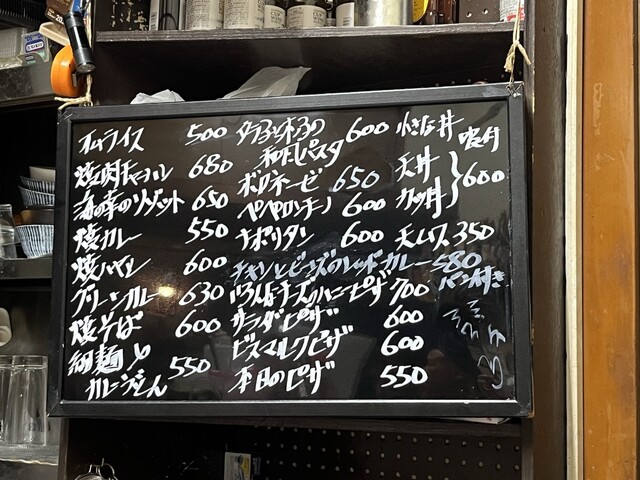 オムライス 500
焼肉チャーハン 680
海の幸のリゾット 650
焼カレー 550
焼ハヤシ 600
グリーンカレー 630
焼そば 600
細麺
カレーうどん 550
和風パスタ 600
ボロネーゼ 650
ペペロンチーノ 600
ナポリタン 600
チキンとビーンズのレッドカレー 580
パン付き
いろんなチーズのハニーピザ 700
サラダピザ 600
ビスマルクピザ 600
本日のピザ 550
天丼
カツ丼
600
天ムス 350